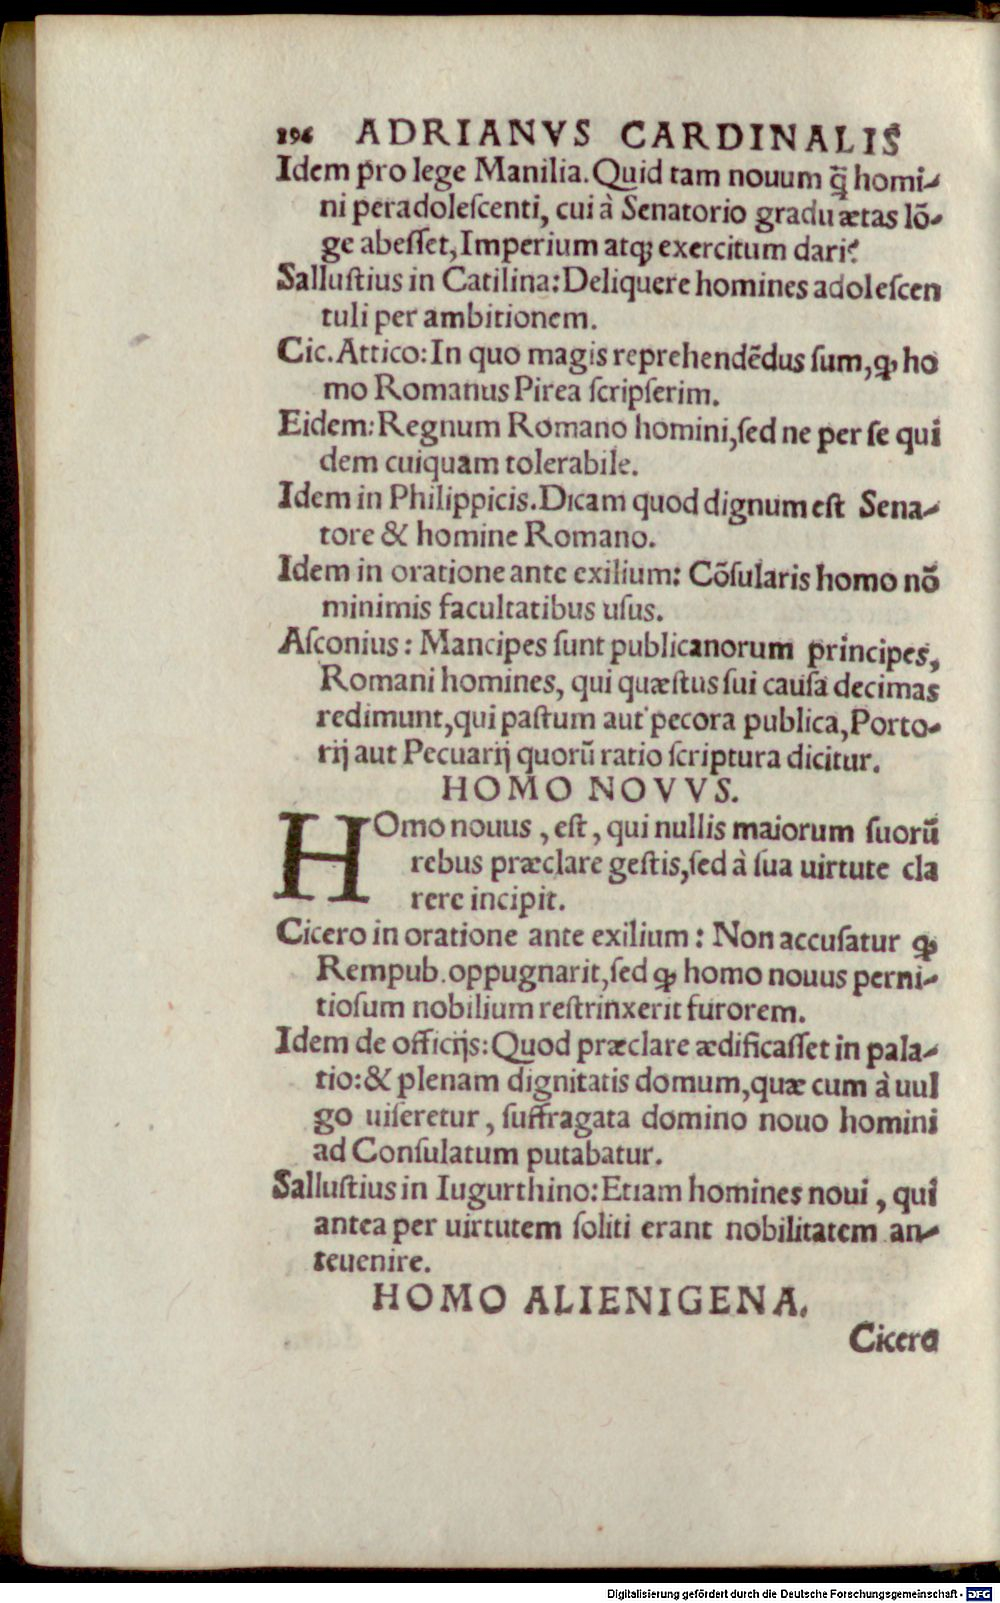 196 ADRIANVS CARDINALIS
Idem pro lege Manilia. Quid tam nouum q̃ homi-
ni peradoleſcenti, cui à Senatorio gradu ætas lõ-
ge abeſſet, Imperium atq; exercitum dari?
Salluſtius in Catilina: Deliquere homines adoleſcen
tuli per ambitionem.
Cic. Attico: In quo magis reprehendẽdus ſum, ꝙ ho
mo Romanus Pirea ſcripſerim.
Eidem: Regnum Romano homini, ſed ne per ſe qui
dem cuiquam tolerabile.
Idem in Philippicis. Dicam quod dignum eſt Sena-
tore & homine Romano.
Idem in oratione ante exilium: Cõſularis homo nõ
minimis facultatibus uſus.
Aſconius: Mancipes ſunt publicanorum principes,
Romani homines, qui quæſtus ſui cauſa decimas
redimunt, qui paſtum aut pecora publica, Porto-
rij aut Pecuarij quorũ ratio ſcriptura dicitur.
HOMO NOVVS.
HOmo nouus, eſt, qui nullis maiorum ſuorũ
rebus præclare geſtis, ſed à ſua uirtute cla
rere incipit.
Cicero in oratione ante exilium: Non accuſatur ꝙ
Rempub. oppugnarit, ſed ꝙ homo nouus perni-
tioſum nobilium reſtrinxerit furorem.
Idem de officijs: Quod præclare ædificaſſet in pala-
tio: & plenam dignitatis domum, quæ cum à uul
go uiſeretur, ſuffragata domino nouo homini
ad Conſulatum putabatur.
Salluſtius in Iugurthino: Etiam homines noui, qui
antea per uirtutem ſoliti erant nobilitatem an-
teuenire.
HOMO ALIENIGENA.
Cicero
Digitalisierung gefördert durch die Deutsche Forschungsgemeinschaft - DFG